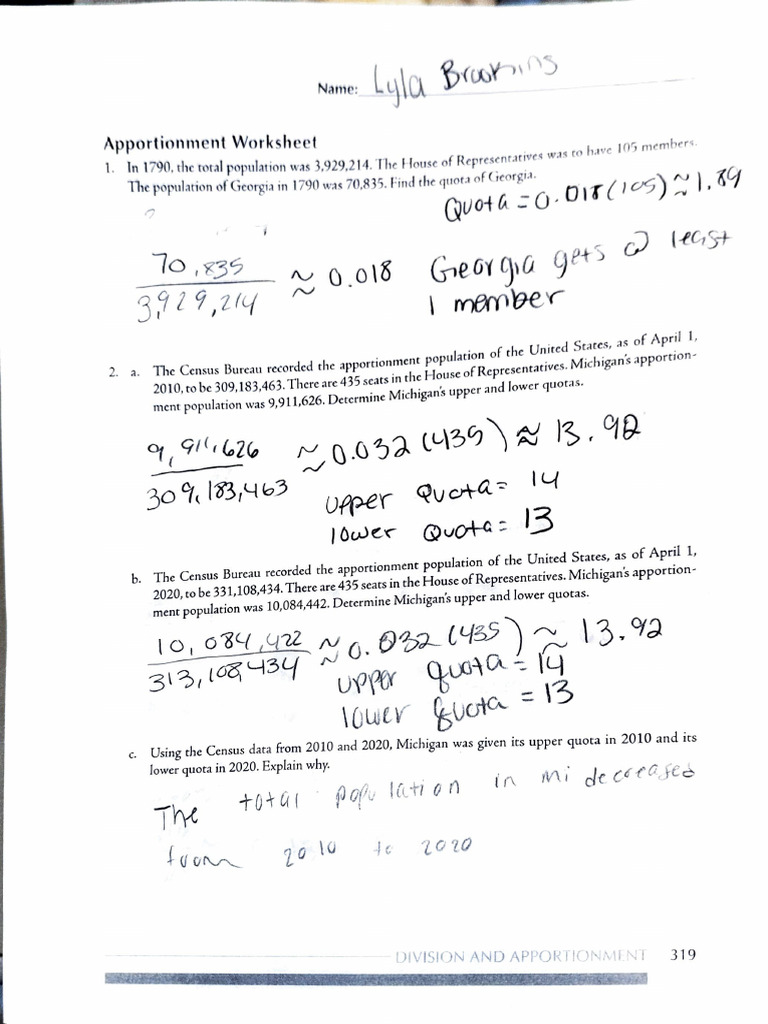 Name: Lyla Brookins
Apportionment Worksheet
1. In 1790, the total population was 3,929,214. The House of Representatives was to have 105 members.
The population of Georgia in 1790 was 70,835. Find the quota of Georgia.
Quota = 0.018(105) ≈ 1.89
70,835
3,929,214
≈ 0.018
Georgia gets @ least
1 member
2. a. The Census Bureau recorded the apportionment population of the United States, as of April 1,
2010, to be 309,183,463. There are 435 seats in the House of Representatives. Michigan's apportion-
ment population was 9,911,626. Determine Michigan's upper and lower quotas.
9,911,626
309,183,463
≈ 0.032(435) ≈ 13.92
Upper Quota = 14
lower Quota = 13
b. The Census Bureau recorded the apportionment population of the United States, as of April 1,
2020, to be 331,108,434. There are 435 seats in the House of Representatives. Michigan's apportion-
ment population was 10,084,442. Determine Michigan's upper and lower quotas.
10,084,422
313,108,434
≈ 0.032(435) ≈ 13.92
upper quota = 14
lower quota = 13
c. Using the Census data from 2010 and 2020, Michigan was given its upper quota in 2010 and its
lower quota in 2020. Explain why.
The total population in mi decreased
from 2010 to 2020
DIVISION AND APPORTIONMENT 319